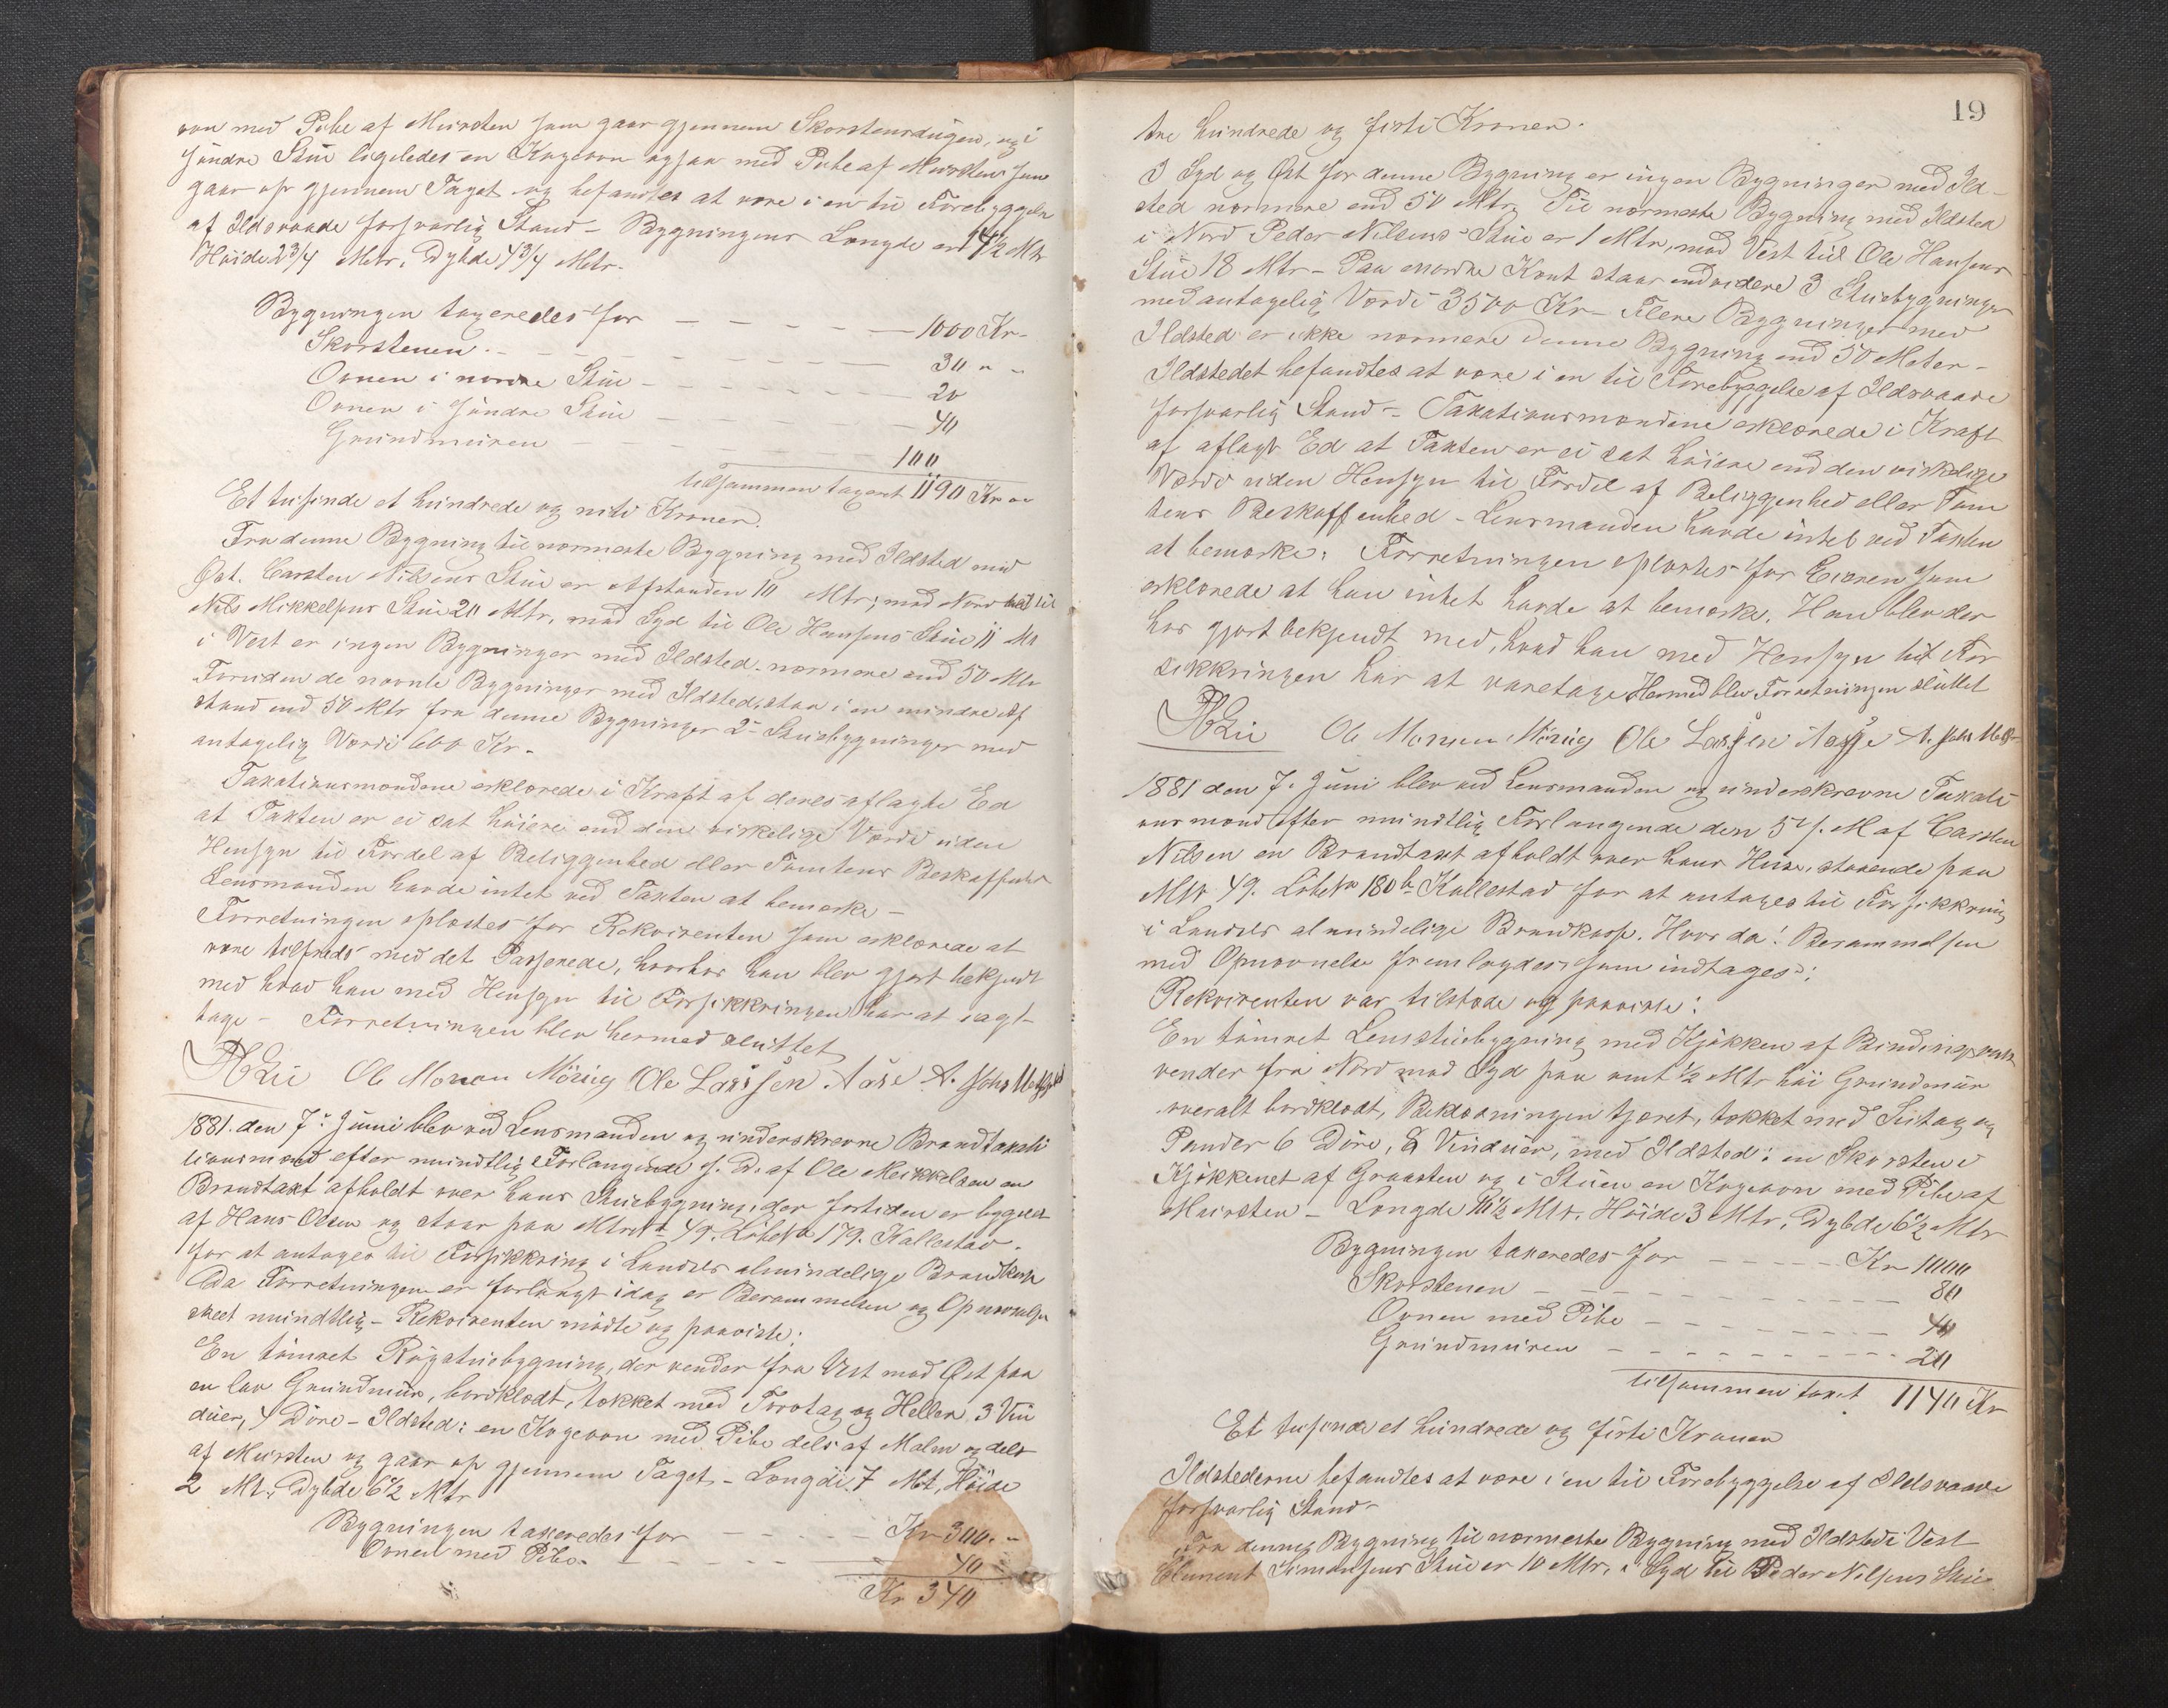 ovn med Pibe af Mursten som gaar gjennem Skorstensdugen, og i
søndre Stue ligeledes en Kogeovn ogsaa med Pibe af Mursten som
gaar op gjennem Taget og befandtes at være i en til Forebyggelse
af Ildsvaade forsvarlig Stand - Bygningens Længde er 14½ Mtr
Høide 2 3/4 Metr. Dybde 4 3/4 Metr.
Bygningen taxeredes for - - - - - 1000 Kr -
Skorstenen - - - - - - 30 " -
Ovnen i nordre Stue - - - - - - 20
Ovnen i søndre Stue - - - - - 40
Grundmuren - - - - - 100
tilsammen taxeret 1190 Kr
Et tusinde et hundrede og niti Kroner.
Fra denne Bygning til nærmeste Bygning med Ildsted mod
Øst. Carsten Nilsens Stue er Afstanden 10 Mtr; mod Nord til
Nils Mikkelsens Stue 20 Mtr, mod Syd til Ole Hansens Stue 11 Mt
i Vest er ingen Bygninger med Ildsted nærmere end 50 Mtr
Foruden de nævnte Bygninger med Ildsted, staa i en mindre Af
stand end 50 Mtr fra denne Bygninger 2 Stuebygninger med
antagelig Værdi 600 Kr -
Taxationsmændene erklærede i Kraft af deres aflagte Ed
at Taxten er ei sat høiere end den virkelige Værdi uden
Hensyn til Fordel af Beliggenhed eller Tomtens Beskaffenhed
Lensmanden havde intet ved Taxten at bemærke -
Forretningen oplæstes for Rekvirenten som erklærede at
være tilfreds med det Passerede, hvorhos han blev gjort bekjendt
med hvad han med Hensyn til Forsikkringen har at iagt-
tage - Forretningen blev hermed sluttet
Ole Monsen Ole Larssen Aase
1881. den 7de Juni blev ved Lensmanden og underskrevne Brandtaxati
tionsmænd efter mundtlig Forlangende s. D. af Ole Mikkelsen en
Brandtaxt afholdt over hans Stuebygning, der fortiden er bygslet
af Hans Olsen og staar paa Mtr No 49. Løbe No 179. Kallestad.
for at antages til Forsikkring i Landets almindelige Brandkasse
Da Forretningen er forlangt idag er Berammelsen og Opnævnelsen
skeet mundtlig - Rekvirenten mødte og paaviste:
En tømret Røgstuebygning, der vender fra Vest mod Øst paa
en lav Grundmur, bordklædt, tækket med Torvtag og Heller, 3 Vin
duer, 4 Døre - Ildsted: en Kogeovn med Pibe dels af Malm og dels
af Mursten og gaar op gjennem Taget - Længde 7 Mt, Høide
2 Mt. Dybde 6½ Mtr
Bygningen taxeredes for - - - - - Kr 300. -
Ovnen med Pibe - - - - - 40 -
Kr 340
19
tre hundrede og firti Kroner.
I Syd og Øst for denne Bygning er ingen Bygninger med Ild-
sted nærmere end 50 Mtr. Til nærmeste Bygning med Ildsted
i Nord Peder Nilsens Stue er 1 Mtr, mod Vest til Ole Hansens
Stue 18 Mtr - Paa nordre Kant staar endvidere 3 Stuebygninger
med antagelig Værdi 3500 Kr - Flere Bygninger med
Ildsted er ikke nærmere denne Bygning end 50 Meter -
Ildstedet befandtes at være i en til Forebyggelse af Ildsvaade
forsvarlig Stand - Taxationsmændene erklærede i Kraft
af aflagt Ed at Taxten er ei sat høiere end den virkelige
Værdi uden Hensyn til Fordel af Beliggenhed eller Tom
tens Beskaffenhed - Lensmanden havde intet ved Taxten
at bemærke; Forretningen oplæstes for Eieren som
erklærede at han intet havde at bemærke. Han blev der
hos gjort bekjendt med, hvad han med Hensyn til For
sikkringen har at varetage Hermed blev Forretningen sluttet
Ole Monsen Ole Larssen Aase
1881 den 7. Juni blev ved Lensmanden og underskrevne Taxati
onsmænd efter mundtlig Forlangende den 5 f. M af Carsten
Nilsen en Brandtaxt afholdt over hans Huse, staaende paa
Mtr 49. Løbe No 180 b Kallestad for at antages til Forsikkring
i Landets almindelige Brandkasse. Hvor da! Berammelsen
med Opnævnelse fremlagdes, som indtages:
Rekvirenten var tilstede og paaviste:
En tømret Lemstuebygning med Kjøkken af Bindingsværk
vender fra Nord mod Syd paa omt ½ Mtr høi Grundmur
overalt bordklædt, Beklædningen tjæret, tækket med Suttag og
Pander 6 Døre, 8 Vinduer, med Ildsted: en Skorsten i
Kjøkkenet af Graasten og i Stuen en Kogeovn med Pibe af
Mursten - Længde 10½ Mtr. Høide 3 Mtr, Dybde 6½ Mtr
Bygningen taxeredes for - - - - - Kr 1000
Skorstenen - - - - - - - - 80
Ovnen med Pibe - - - - - - 40
Grundmuren - - - - - - - - 20
tilsammen taxt 1140 Kr
Et tusinde et hundrede og firti Kroner
Ildstederne befandtes at være i en til Forebyggelse af Ildsvaade
forsvarlig Stand -
Fra denne Bygning til nærmeste Bygning med Ildsted i Vest
Clement Simonsens Stue er 10 Mtr, i Syd til Peder Nilsens Stue